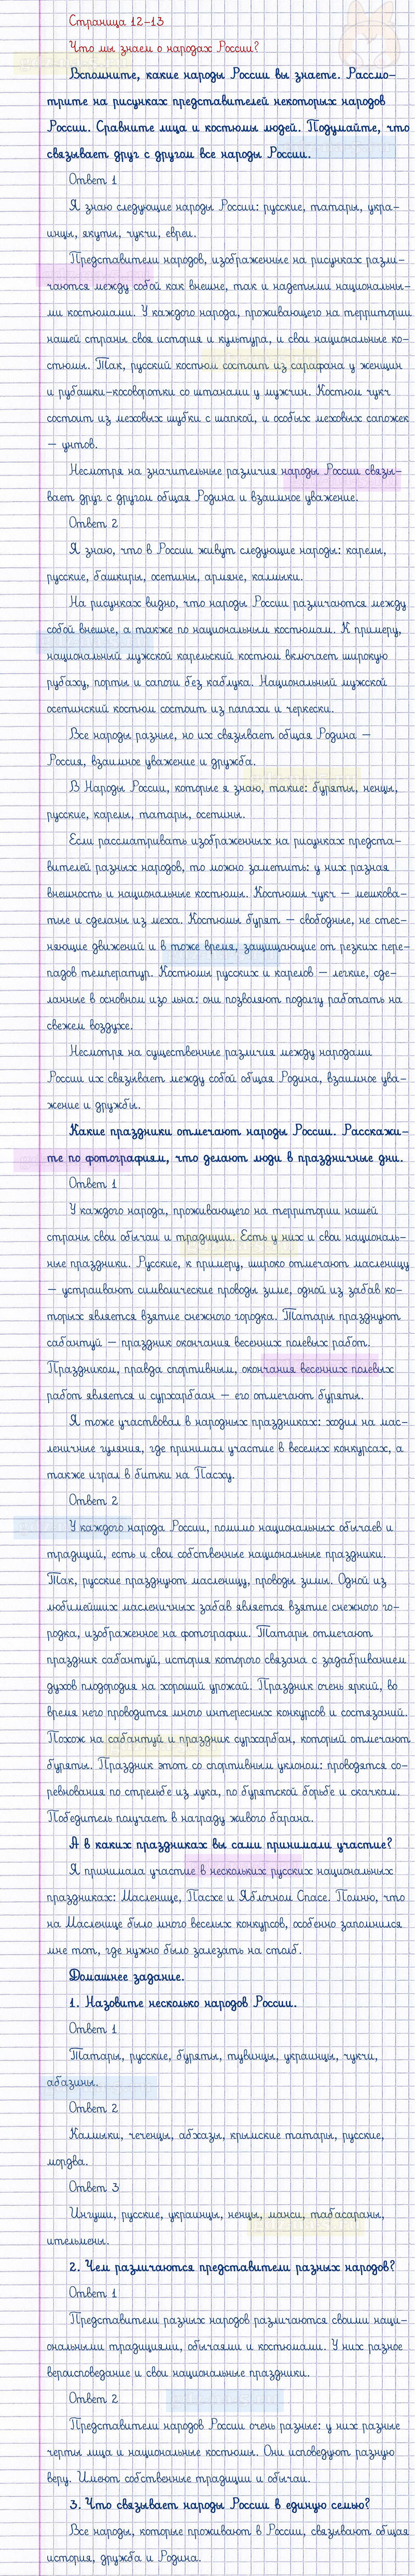 Страница 12-13
Что мы знаем о народах России?
Вспомните, какие народы России вы знаете. Рассмо-
трите на рисунках представителей некоторых народов
России. Сравните лица и костюмы людей. Подумайте, что
связывает друг с другом все народы России.
Ответ 1
Я знаю следующие народы России: русские, татары, укра-
инцы, якуты, чукчи, евреи.
Представители народов, изображенные на рисунках разли-
чаются между собой как внешне, так и надетыми национальны-
ми костюмами. У каждого народа, проживающего на территории
нашей страны своя история и культура, и свои национальные ко-
стюмы. Так, русский костюм состоит из сарафана у женщин
и рубашки-косоворотки со штанами у мужчин. Костюм чукч
состоит из меховых шубки с шапкой, и особых меховых сапожек
— унтов.
Несмотря на значительные различия народы России связы-
вает друг с другом общая Родина и взаимное уважение.
Ответ 2
Я знаю, что в России живут следующие народы: карелы,
русские, башкиры, осетины, армяне, калмыки.
На рисунках видно, что народы России различаются между
собой внешне, а также по национальным костюмам. К примеру,
национальный мужской карельский костюм включает широкую
рубаху, порты и сапоги без каблука. Национальный мужской
осетинский костюм состоит из папахи и черкески.
Все народы разные, но их связывает общая Родина —
Россия, взаимное уважение и дружба.
В Народы России, которые я знаю, такие: буряты, ненцы,
русские, карелы, татары, осетины.
Если рассматривать изображенных на рисунках предста-
вителей разных народов, то можно заметить: у них разная
внешность и национальные костюмы. Костюмы чукч — мешкова-
тые и сделаны из меха. Костюмы бурят — свободные, не стес-
няющие движений и в тоже время, защищающие от резких пере-
падов температур. Костюмы русских и карелов — легкие, сде-
ланные в основном изо льна: они позволяют подолгу работать на
свежем воздухе.
Несмотря на существенные различия между народами
России их связывает между собой общая Родина, взаимное ува-
жение и дружбы.
Какие праздники отмечают народы России. Расскажи-
те по фотографиям, что делают люди в праздничные дни.
Ответ 1
У каждого народа, проживающего на территории нашей
страны свои обычаи и традиции. Есть у них и свои националь-
ные праздники. Русские, к примеру, широко отмечают масленицу
— устраивают символические проводы зиме, одной из забав ко-
торых является взятие снежного городка. Татары празднуют
сабантуй — праздник окончания весенних полевых работ.
Праздником, правда спортивным, окончания весенних полевых
работ является и сурхарбаан — его отмечают буряты.
Я тоже участвовал в народных праздниках: ходил на мас-
леничные гуляния, где принимал участие в веселых конкурсах, а
также играл в битки на Пасху.
Ответ 2
У каждого народа России, помимо национальных обычаев и
традиций, есть и свои собственные национальные праздники.
Так, русские празднуют масленицу, проводы зимы. Одной из
любимейших масленичных забав является взятие снежного го-
родка, изображенное на фотографии. Татары отмечают
праздник сабантуй, история которого связана с задабриванием
духов плодородия на хороший урожай. Праздник очень яркий, во
время него проводится много интересных конкурсов и состязаний.
Похож на сабантуй и праздник сурхарбан, который отмечают
буряты. Праздник этот со спортивным уклоном: проводятся со-
ревнования по стрельбе из лука, по бурятской борьбе и скачкам.
Победитель получает в награду живого барана.
А в каких праздниках вы сами принимали участие?
Я принимала участие в нескольких русских национальных
праздниках: Масленице, Пасхе и Яблочном Спасе. Помню, что
на Масленице было много веселых конкурсов, особенно запомнился
мне тот, где нужно было залезать на столб.
Домашнее задание.
1. Назовите несколько народов России.
Ответ 1
Татары, русские, буряты, тувинцы, украинцы, чукчи,
абазины.
Ответ 2
Калмыки, чеченцы, абхазы, крымские татары, русские,
мордва.
Ответ 3
Ингуши, русские, украинцы, ненцы, манси, табасараны,
ительмены.
2. Чем различаются представители разных народов?
Ответ 1
Представители разных народов различаются своими наци-
ональными традициями, обычаями и костюмами. У них разное
вероисповедание и свои национальные праздники.
Ответ 2
Представители народов России очень разные: у них разные
черты лица и национальные костюмы. Они исповедуют разную
веру. Имеют собственные традиции и обычаи.
3. Что связывает народы России в единую семью?
Все народы, которые проживают в России, связывают общая
история, дружба и Родина.